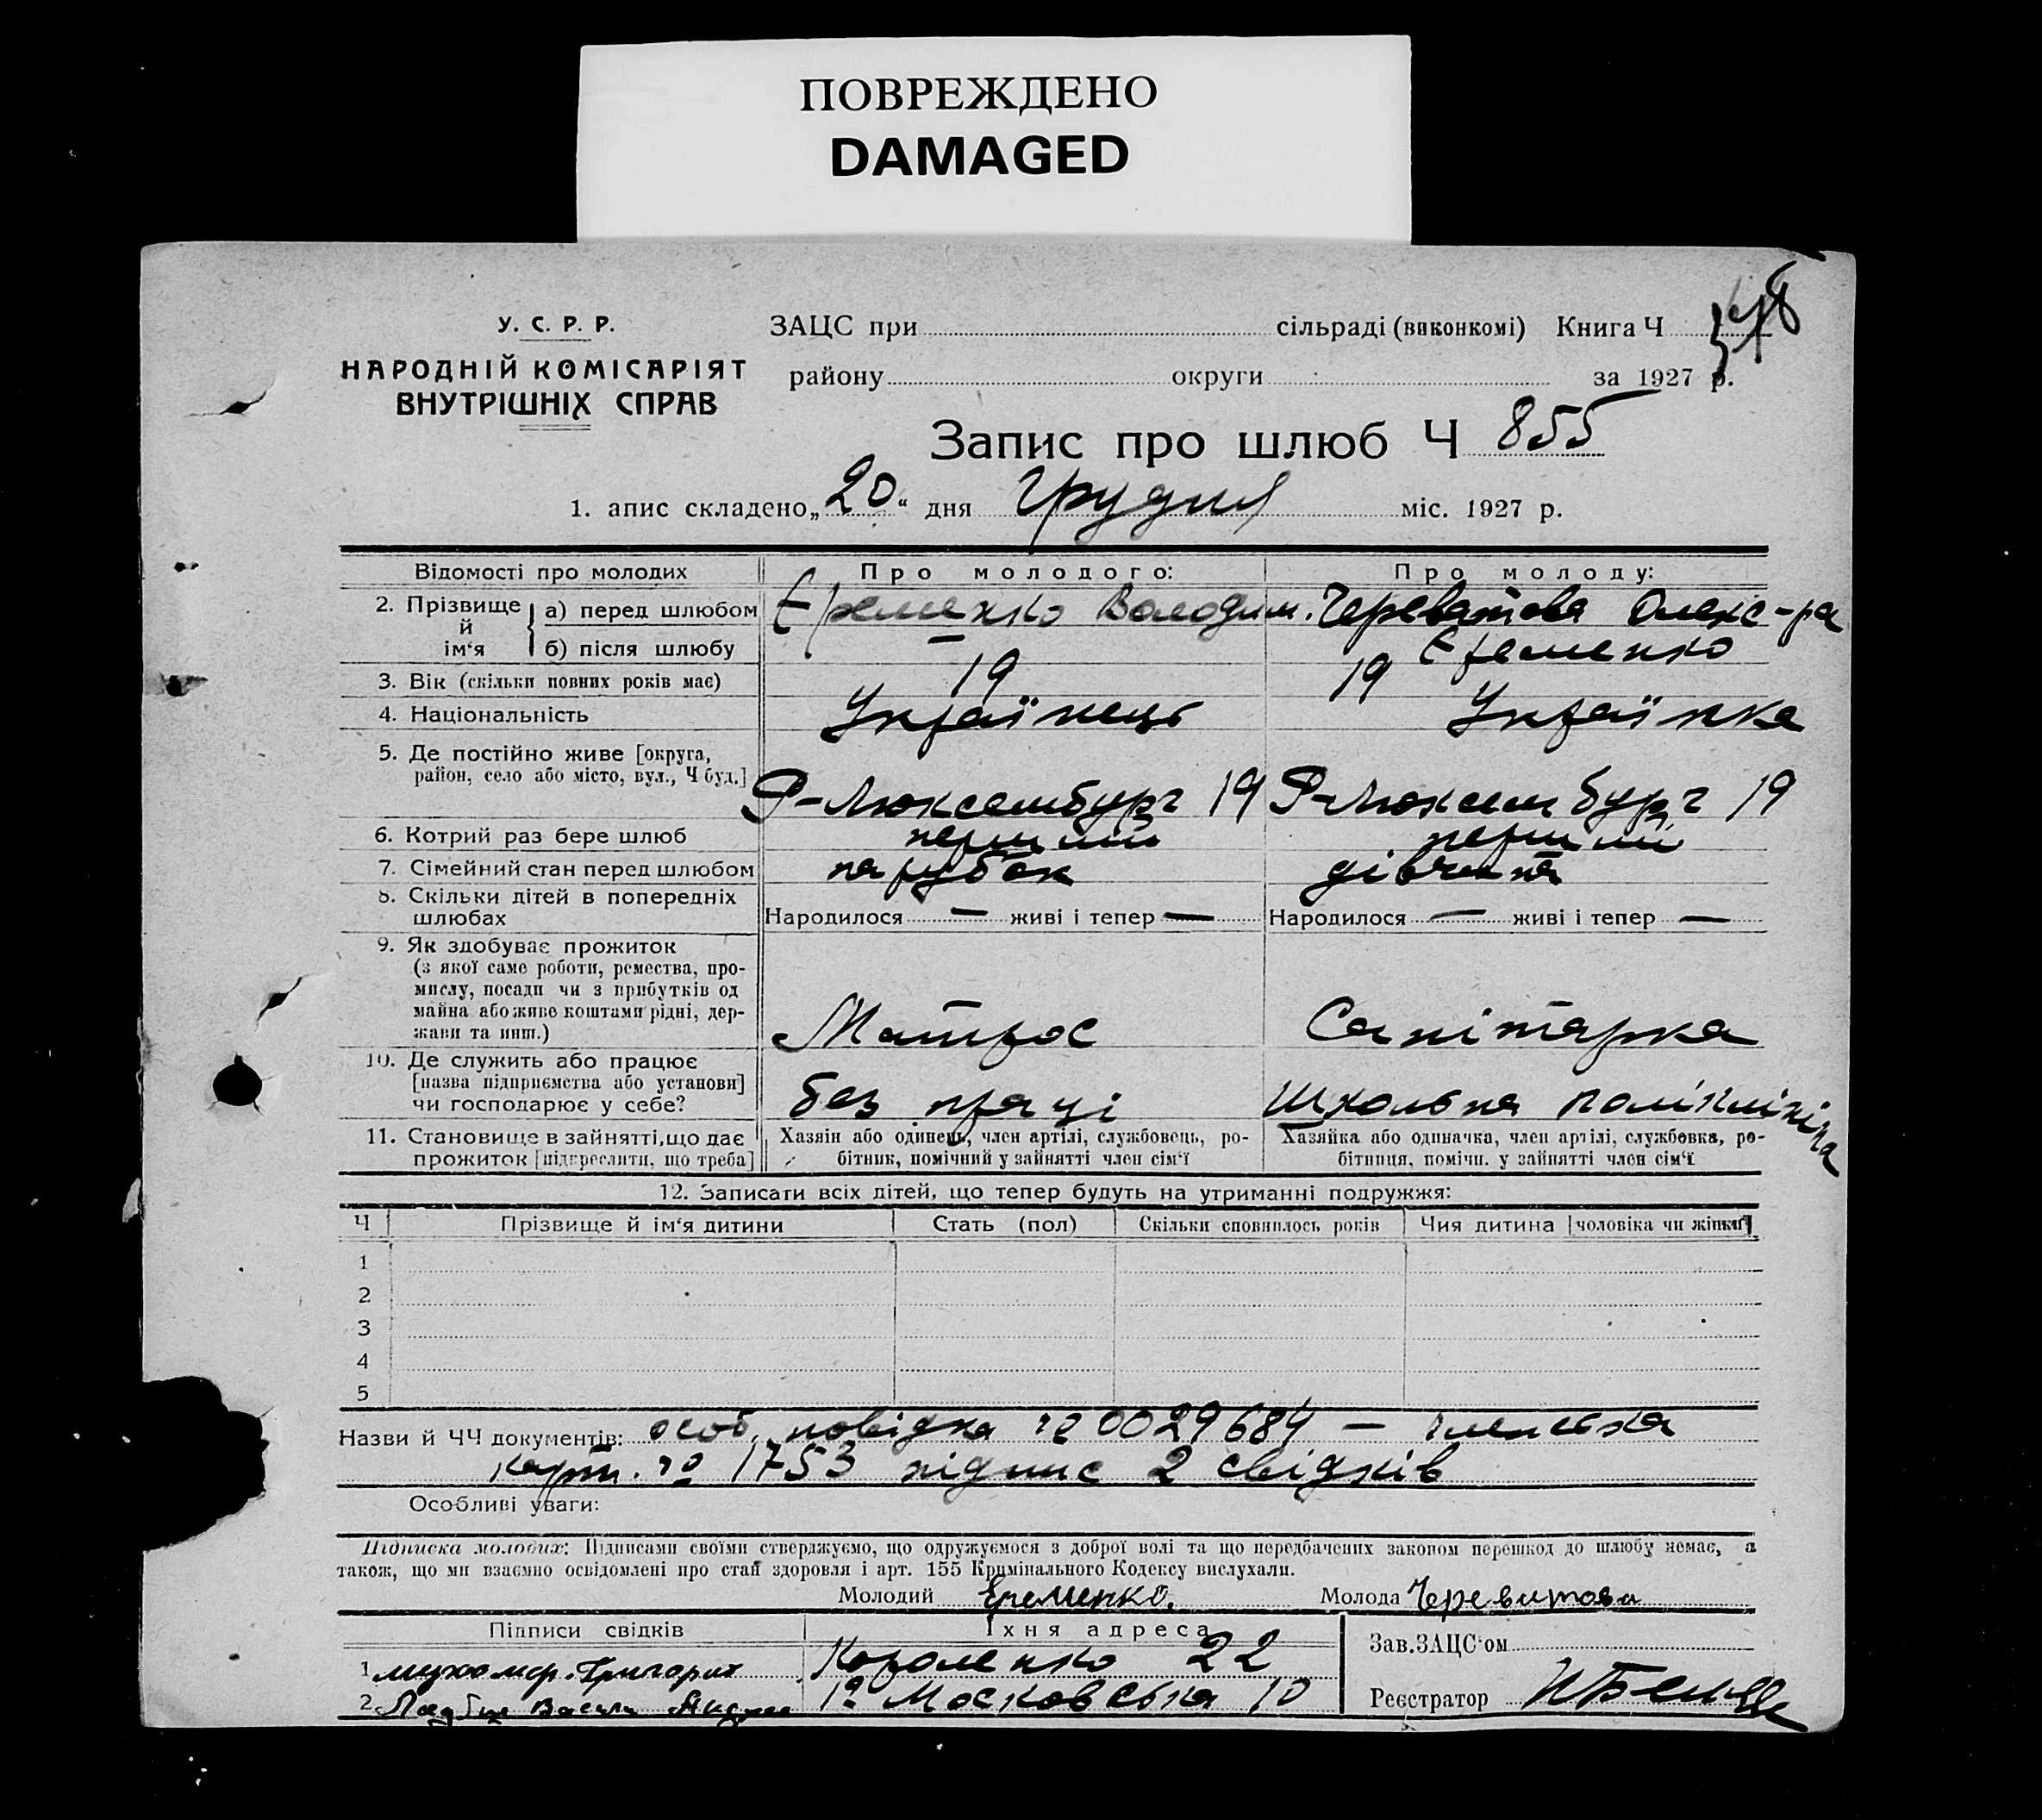 ПОВРЕЖДЕНО
DAMAGED
У. С. Р. Р.
НАРОДНІЙ КОМІСАРІЯТ
ВНУТРІШНІХ СПРАВ
ЗАЦС при сільраді (виконкомі) Книга Ч
району округи за 1927 р.
Запис про шлюб Ч 855
1. апис складено „20“ дня Грудня міс. 1927 р.
Відомості про молодих Про молодого: Про молоду:
2. Прізвище й ім‘я а) перед шлюбом Єременко Володим. Череватова Олекс-ра
б) після шлюбу — Єременко
3. Вік (скільки повних років має) 19 19
4. Національність Українець Українка
5. Де постійно живе [округа,
район, село або місто, вул., Ч буд.] Р-Люксембург 19 Р-Люксембург 19
6. Котрий раз бере шлюб перший перший
7. Сімейний стан перед шлюбом парубок дівчина
8. Скільки дітей в попередніх
шлюбах Народилося — живі і тепер — Народилося — живі і тепер —
9. Як здобуває прожиток
(з якої саме роботи, ремества, про-
мислу, посади чи з прибутків од
майна або живе коштами рідні, дер-
жави та инш.) Матрос Санітарка
10. Де служить або працює
[назва підприємства або установи]
чи господарює у себе? без праці Школьна поликлініка
11. Становище в зайнятті, що дає Хазяїн або одинець, член артілі, службовець, ро- Хазяйка або одиначка, член артілі, службовка, ро-
прожиток [підкреслити, що треба] бітник, помічний у зайнятті член сім‘ї бітниця, помічн. у зайнятті член сім‘ї
12. Записати всіх дітей, що тепер будуть на утриманні подружжя:
Ч Прізвище й ім‘я дитини Стать (пол) Скільки сповнилось років Чия дитина [чоловіка чи жінки]
1
2
3
4
5
Назви й ЧЧ документів: особ. повідка № 0029684 — членська
карт. № 1753 підпис 2 свідків
Особливі уваги:
Підписка молодих: Підписами своїми стверджуємо, що одружуємося з доброї волі та що передбачених законом перешкод до шлюбу немає, а
також, що ми взаємно освідомлені про стан здоровля і арт. 155 Кримінального Кодексу вислухали.
Молодий Єременко. Молода Череватова
Підписи свідків Їхня адреса Зав. ЗАЦС‘ом
1. Григорий Короленко 22
2. Васили 1а Московська 10 Реєстратор